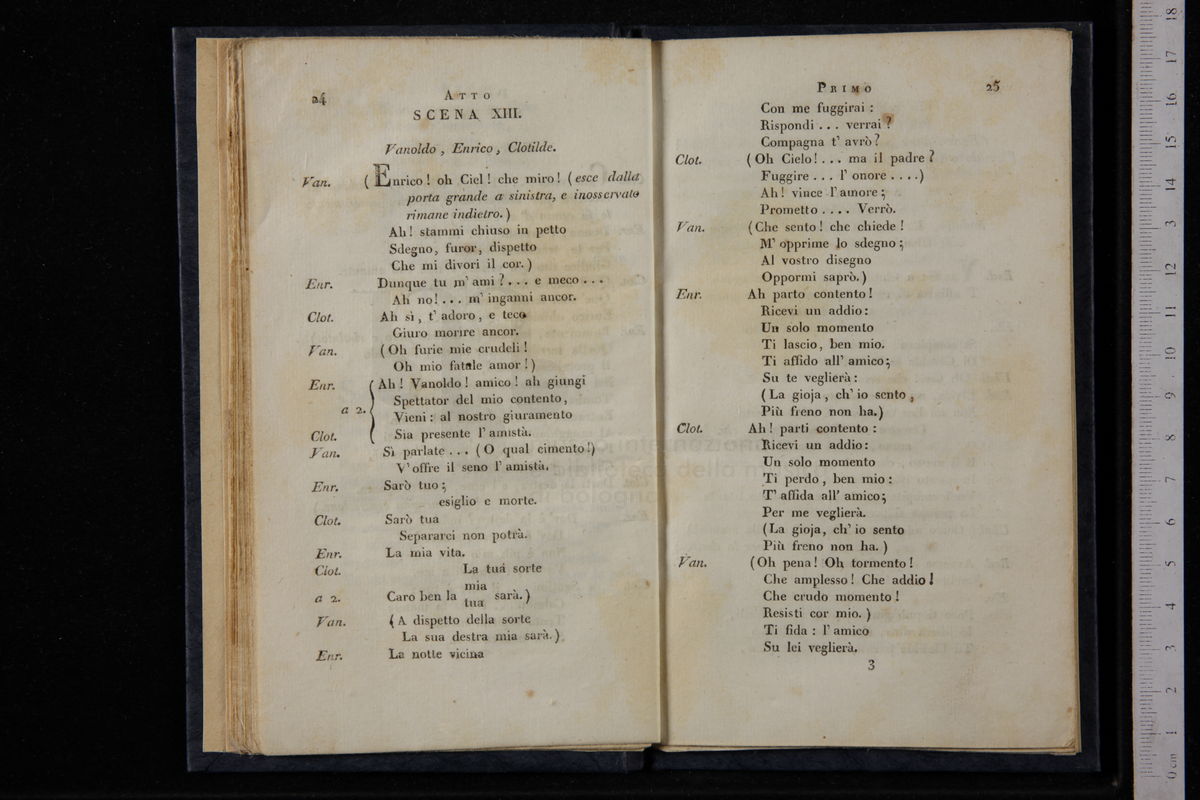 24
ATTO
SCENA XIII.
Vanoldo, Enrico, Clotilde.
Van. (Enrico! oh Ciel! che miro! (esce dalla
porta grande a sinistra, e inosservato
rimane indietro.)
Ah! stammi chiuso in petto
Sdegno, furor, dispetto
Che mi divori il cor.)
Enr. Dunque tu m' ami?... e meco...
Ah no!... m' inganni ancor.
Clot. Ah sì, t' adoro, e teco
Giuro morire ancor.
Van. (Oh furie mie crudeli!
Oh mio fatale amor!)
Enr. Ah! Vanoldo! amico! ah giungi
Spettator del mio contento,
a 2. Vieni: al nostro giuramento
Clot. Sia presente l' amistà.
Van. Sì parlate... (O qual cimento!)
V' offre il seno l' amistà.
Enr. Sarò tuo;
esiglio e morte.
Clot. Sarò tua
Separarci non potrà.
Enr. La mia vita.
Clot. La tua sorte
a 2. Caro ben la mia tua sarà.)
Van. (A dispetto della sorte
La sua destra mia sarà.)
Enr. La notte vicina
PRIMO
25
Con me fuggirai:
Rispondi... verrai?
Compagna t' avrò?
Clot. (Oh Cielo!... ma il padre?
Fuggire... l' onore....)
Ah! vince l' amore;
Prometto.... Verrò.
Van. (Che sento! che chiede!
M' opprime lo sdegno;
Al vostro disegno
Oppormi saprò.)
Enr. Ah parto contento!
Ricevi un addio:
Un solo momento
Ti lascio, ben mio.
Ti affido all' amico;
Su te veglierà:
(La gioja, ch' io sento,
Più freno non ha.)
Clot. Ah! parti contento:
Ricevi un addio:
Un solo momento
Ti perdo, ben mio:
T' affida all' amico;
Per me veglierà.
(La gioja, ch' io sento
Più freno non ha.)
Van. (Oh pena! Oh tormento!
Che amplesso! Che addio!
Che crudo momento!
Resisti cor mio.)
Ti fida: l' amico
Su lei veglierà.
3